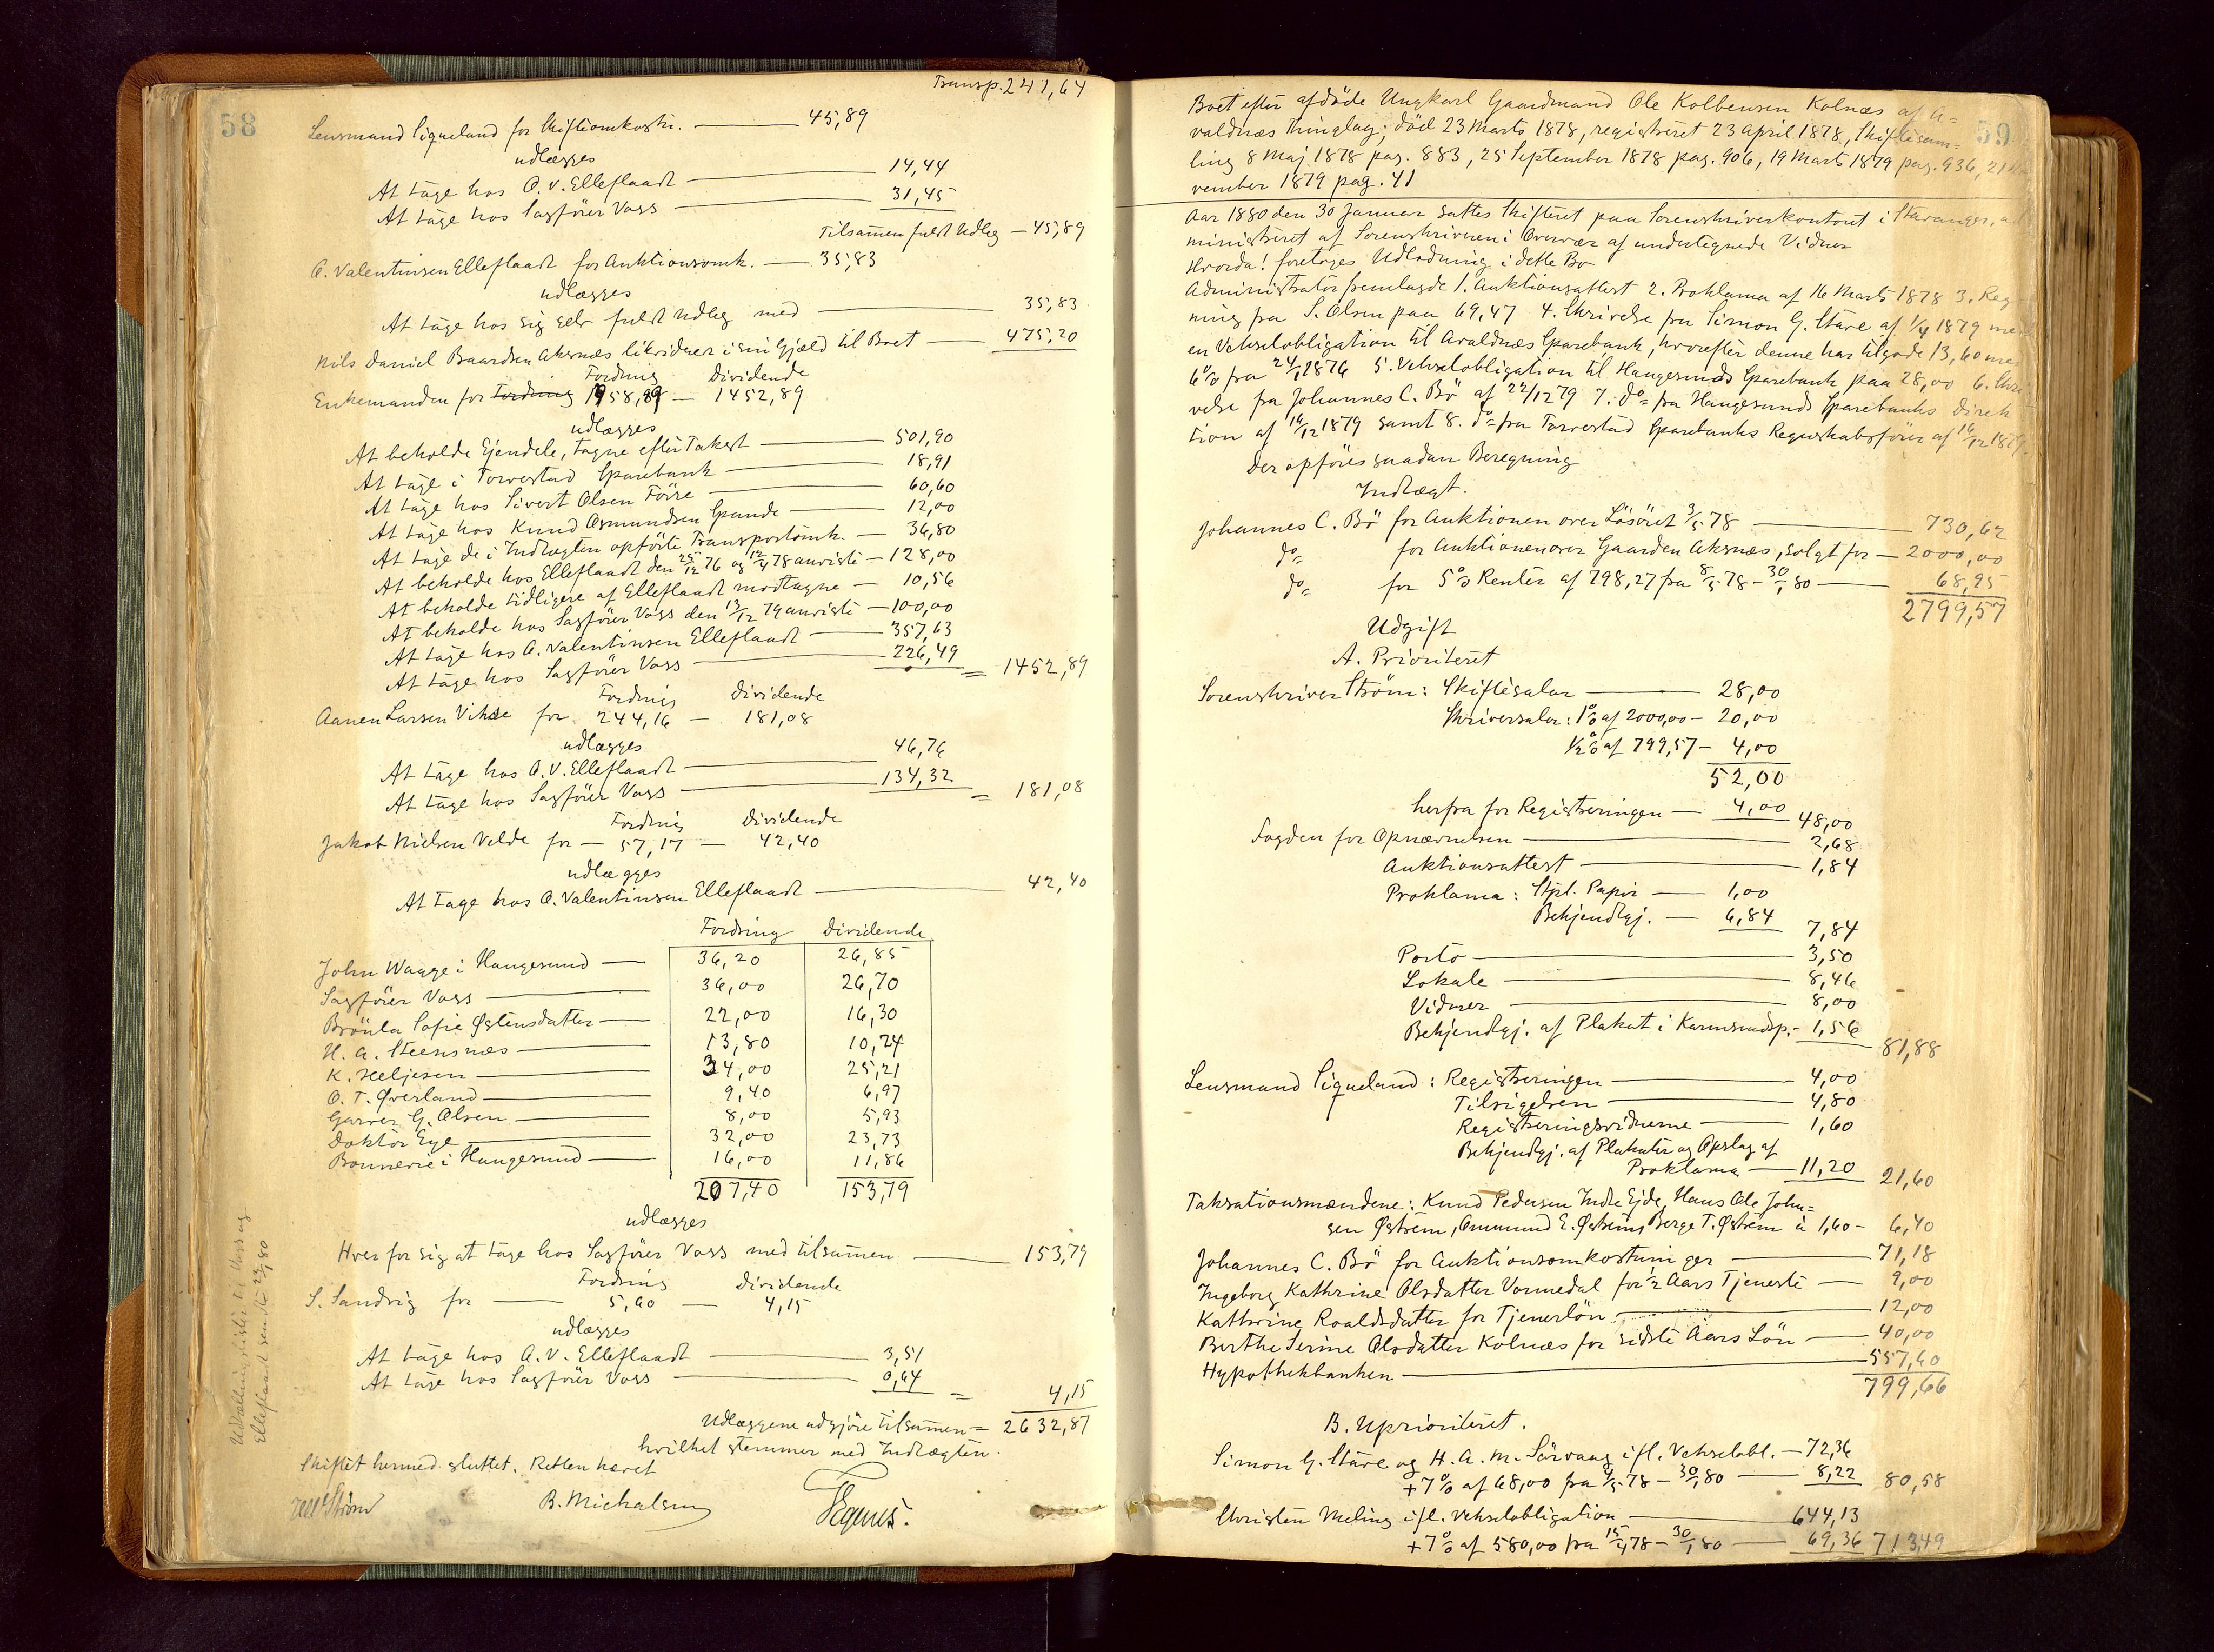 58
Transp. 241,64
Lensmand Siqueland for Skifteomkostn. — 45,89
udlægges
At tage hos O. V. Elleflaadt — 14,44
At tage hos Sagfører Voss — 31,45
Tilsamen fuldt Udlæg — 45,89
O. Valentinsen Elleflaadt for Auktionsomk. — 35,83
udlægges
At tage hos sig selv fuldt Udlæg med — 35,83
Nils Daniel Baardsen Aksnæs likviderer i sin Gjæld til Boet — 475,20
Fordring Dividende
Enkemanden for Fordring 1958,89 — 1452,89
udlægges
At beholde Ejendele, tagne efter Takst — 501,90
At tage i Torvestad Sparebank — 18,91
At tage hos Sivert Olsen Förre — 60,60
At tage hos Knud Osmundsen Spande — 12,00
At tage de i Indtægten opførte Transportomk. — 36,80
At beholde hos Elleflaadt den 25/12 76 og 12/4 78 anviste — 128,00
At beholde tidligere af Elleflaadt modtagne — 10,56
At beholde hos Sagfører Voss den 13/12 79 anviste — 100,00
At tage hos O. Valentinsen Elleflaadt — 357,63
At tage hos Sagfører Voss — 226,49 = 1452,89
Fordring Dividende
Aanen Larsen Vikse for 244,16 — 181,08
udlægges
At tage hos O. V. Elleflaadt — 46,76
At tage hos Sagfører Voss — 134,32 = 181,08
Fordring Dividende
Jakob Nielsen Velde for — 57,17 — 42,40
udlægges
At tage hos O. Valentinsen Elleflaadt — 42,40
Fordring Dividende
John Waage i Haugesund — 36,20 26,85
Sagfører Voss — 36,00 26,70
Brönla Sofie Østensdatter — 22,00 16,30
H. A. Steensnæs — 13,80 10,24
K. Heljesen — 34,00 25,21
O. T. Øverland — 9,40 6,97
Garver G. Olsen — 8,00 5,93
Doktor Eye — 32,00 23,73
Bonnevie i Haugesund — 16,00 11,86
207,40 153,79
udlægges
Hver for sig at tage hos Sagfører Voss med tilsamen — 153,79
Fordring Dividende
S. Sandvig for — 5,60 — 4,15
udlægges
At tage hos O. V. Elleflaadt — 3,51
At tage hos Sagfører Voss — 0,64 = 4,15
Udlæggene udgjöre tilsamen = 2632,87
hvilket stemmer med Indtægten.
Skiftet hermed sluttet. Retten hævet
Ström B. Michalsen
Udstedt Lister til Voss og
Elleflaadt den 23/2 80
59
Boet efter afdøde Ungkarl Gaardmand Ole Kolbensen Kolnæs af A=
valdnæs Thinglag; död 23 Marts 1878, registreret 23 April 1878, Skiftesam=
ling 8 Maj 1878 pag. 883, 25 September 1878 pag. 906, 19 Marts 1879 pag. 936, 21 No
vember 1879 pag. 41
Aar 1880 den 30 Januar sattes Skifteret paa Sorenskriverkontoret i Stavanger, ad
ministreret af Sorenskriveren i Overvær af undertegnede Vidner
Hvorda! foretoges Udlodning i dette Bo
Administrator fremlagde 1. Auktionsattest 2. Proklama af 16 Marts 1878 3. Reg
ning fra S. Olsen paa 69,47 4. Skrivelse fra Simon G. Stare af 1/4 1879 med
en Vekselobligation til Avaldnæs Sparebank, hvorefter denne har tilgode 13,60 med
6% fra 24/1 1876 5. Vekselobligation til Haugesunds Sparebank paa 28,00 6. Skri
velse fra Johannes C. Bö af 22/12 79 7. do= fra Haugesunds Sparebanks Direk
tion af 16/12 1879 samt 8. do= fra Torvestad Sparebanks Regnskabsfører af 16/12 1879.
Der opføres saadan Beregning
Indtægt.
Johannes C. Bö for Auktionen over Lösöret 3/5 78 — 730,62
do= for Auktionen over Gaarden Aksnæs, solgt for — 2000,00
do= for 5% Renter af 798,27 fra 8/5 78 – 30/1 80 — 68,95
2799,57
Udgift
A. Prioriteret
Sorenskriver Ström: Skiftesalær — 28,00
Skriversalær: 1% af 2000,00 – 20,00
1/2% af 799,57 – 4,00
52,00
herfra for Registreringen — 4,00 48,00
Fogden for Opnævnelsen — 2,68
Auktionsattest — 1,84
Proklama: Stpl. Papir — 1,00
Bekjendtgj. — 6,84 7,84
Porto — 3,50
Lokale — 8,46
Vidner — 8,00
Bekjendtgj. af Plakat i Karmsundsp. – 1,56 81,88
Lensmand Siqueland: Registreringen — 4,00
Tilsigelsen — 4,80
Registreringsvidnerne — 1,60
Bekjendtgj. af Plakater og Opslag af
Proklama — 11,20 21,60
Taksationsmændene: Knud Pedersen Indre Ejde, Hans Ole John=
sen Østrem, Ommund E. Østrem, Berge T. Østrem à 1,60 – 6,40
Johannes C. Bö for Auktionsomkostninger — 71,18
Ingeborg Kathrine Olsdatter Vormedal for 1/2 Aars Tjeneste — 9,00
Kathrine Roaldsdatter for Tjenerlön — 12,00
Berthe Serine Olsdatter Kolnæs for sidste Aars Lön — 40,00
Hypothekbanken — 557,60
799,66
B. Uprioriteret.
Simon G. Stare og H. A. M. Sörvaag ifl. Vekselobl. — 72,36
+ 7% af 68,00 fra 4/5 78 – 30/1 80 — 8,22 80,58
Christen Meling ifl. Vekselobligation — 644,13
+ 7% af 580,00 fra 15/4 78 – 30/1 80 — 69,36 713,49